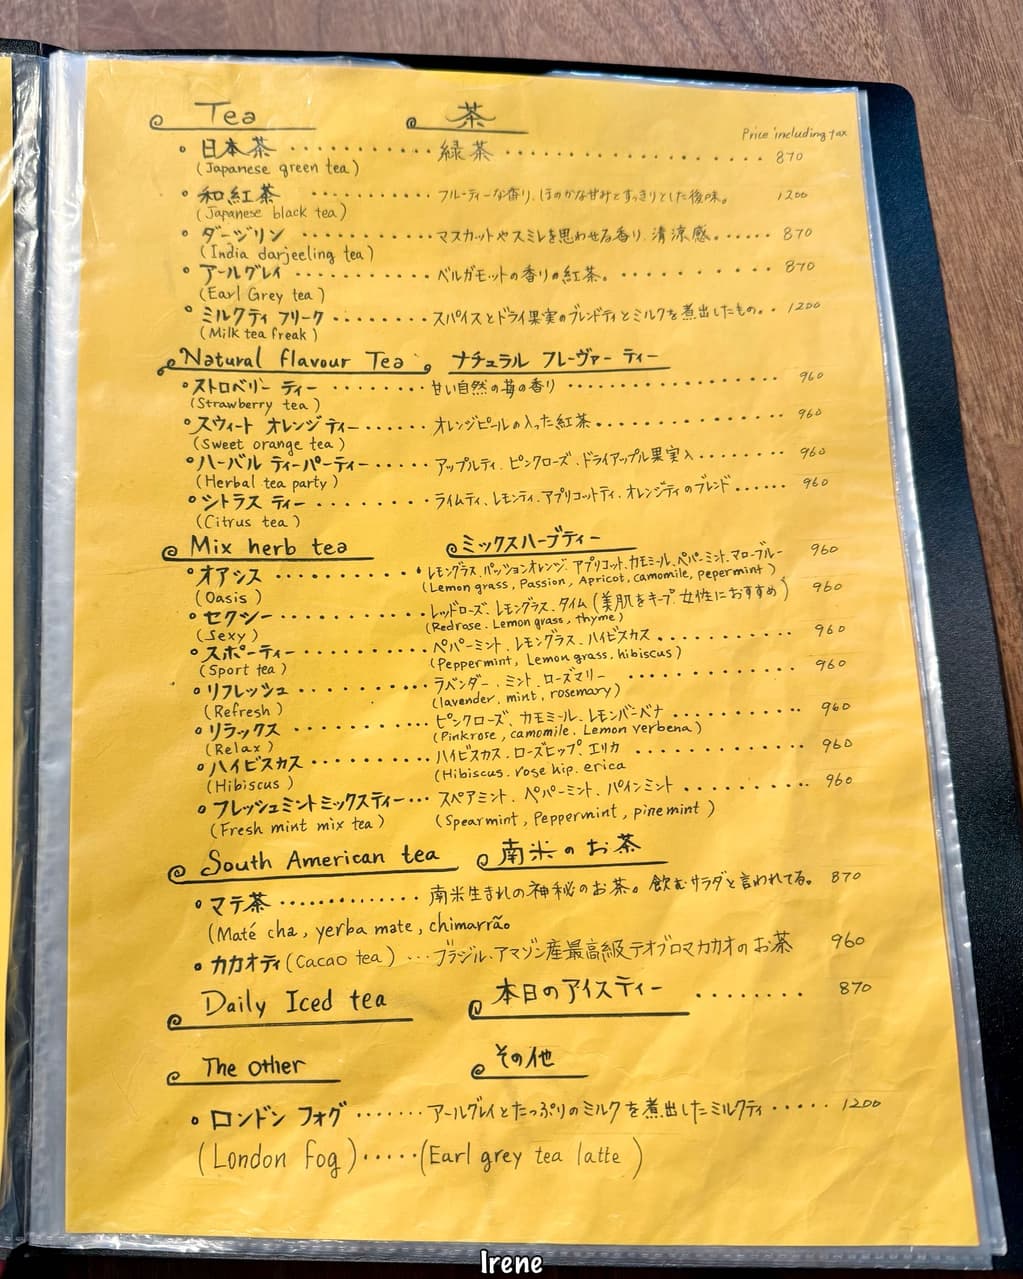 Tea 茶
Price including tax
日本茶 ・・・・・・・・・・ 緑茶 ・・・・・・・・・・ 870
(Japanese green tea)
和紅茶 ・・・・・・・・・・ フルーティーな香り、ほのかな甘みとすっきりとした後味。 1200
(Japanese black tea)
ダージリン ・・・・・・・・・・ マスカットやスミレを思わせる香り、清涼感。・・・・・ 870
(India darjeeling tea)
アールグレイ ・・・・・・・・・・ ベルガモットの香りの紅茶。・・・・・・・・ 870
(Earl Grey tea)
ミルクティ フリーク ・・・・・・・・ スパイスとドライ果実のブレンドティとミルクを煮出したもの。・・ 1200
(Milk tea freak)
Natural flavour Tea ナチュラル フレーヴァー ティー
ストロベリー ティー ・・・・・・・・ 甘い自然の苺の香り ・・・・・・・・・・ 960
(Strawberry tea)
スウィート オレンジ ティー ・・・・・ オレンジピールの入った紅茶。・・・・・・・・・ 960
(Sweet orange tea)
ハーバル ティーパーティー ・・・・・ アップルティ、ピンクローズ、ドライアップル果実入・・・・・・・ 960
(Herbal tea party)
シトラス ティー ・・・・・・・・ ライムティ、レモンティ、アプリコットティ、オレンジティのブレンド・・・・・ 960
(Citrus tea)
Mix herb tea ミックスハーブティー
オアシス ・・・・・・・・・・ レモングラス、パッションオレンジ、アプリコット、カモミール、ペパーミント、マローブルー 960
(Oasis) (Lemon grass, Passion, Apricot, camomile, pepermint)
セクシー ・・・・・・・・・・ レッドローズ、レモングラス、タイム (美肌をキープ 女性におすすめ) 960
(Sexy) (Redrose. Lemon grass, thyme)
スポーティー ・・・・・・・・・ ペパーミント、レモングラス、ハイビスカス ・・・・・・・・ 960
(Sport tea) (Peppermint, Lemon grass, hibiscus)
リフレッシュ ・・・・・・・・・ ラベンダー、ミント、ローズマリー ・・・・・・・・・ 960
(Refresh) (lavender, mint, rosemary)
リラックス ・・・・・・・・・・ ピンクローズ、カモミール、レモンバーベナ ・・・・・・・・ 960
(Relax) (Pinkrose, camomile. Lemon verbena)
ハイビスカス ・・・・・・・・・ ハイビスカス、ローズヒップ、エリカ ・・・・・・・・・ 960
(Hibiscus) (Hibiscus. rose hip. erica
フレッシュミントミックスティー・・・ スペアミント、ペパーミント、パインミント ・・・・・・・・・ 960
(Fresh mint mix tea) (Spearmint, Peppermint, pine mint)
South American tea 南米のお茶
マテ茶 ・・・・・・・・・・ 南米生まれの神秘のお茶。飲むサラダと言われてる。 870
(Maté cha, yerba mate, chimarrão
カカオティ (Cacao tea) ・・・ ブラジル、アマゾン産最高級テオブロマカカオのお茶 960
Daily Iced tea 本日のアイスティー ・・・・・・・ 870
The other その他
ロンドン フォグ ・・・・・・・ アールグレイとたっぷりのミルクを煮出したミルクティ ・・・・・ 1200
(London Fog) ・・・・・ (Earl grey tea latte)
Irene